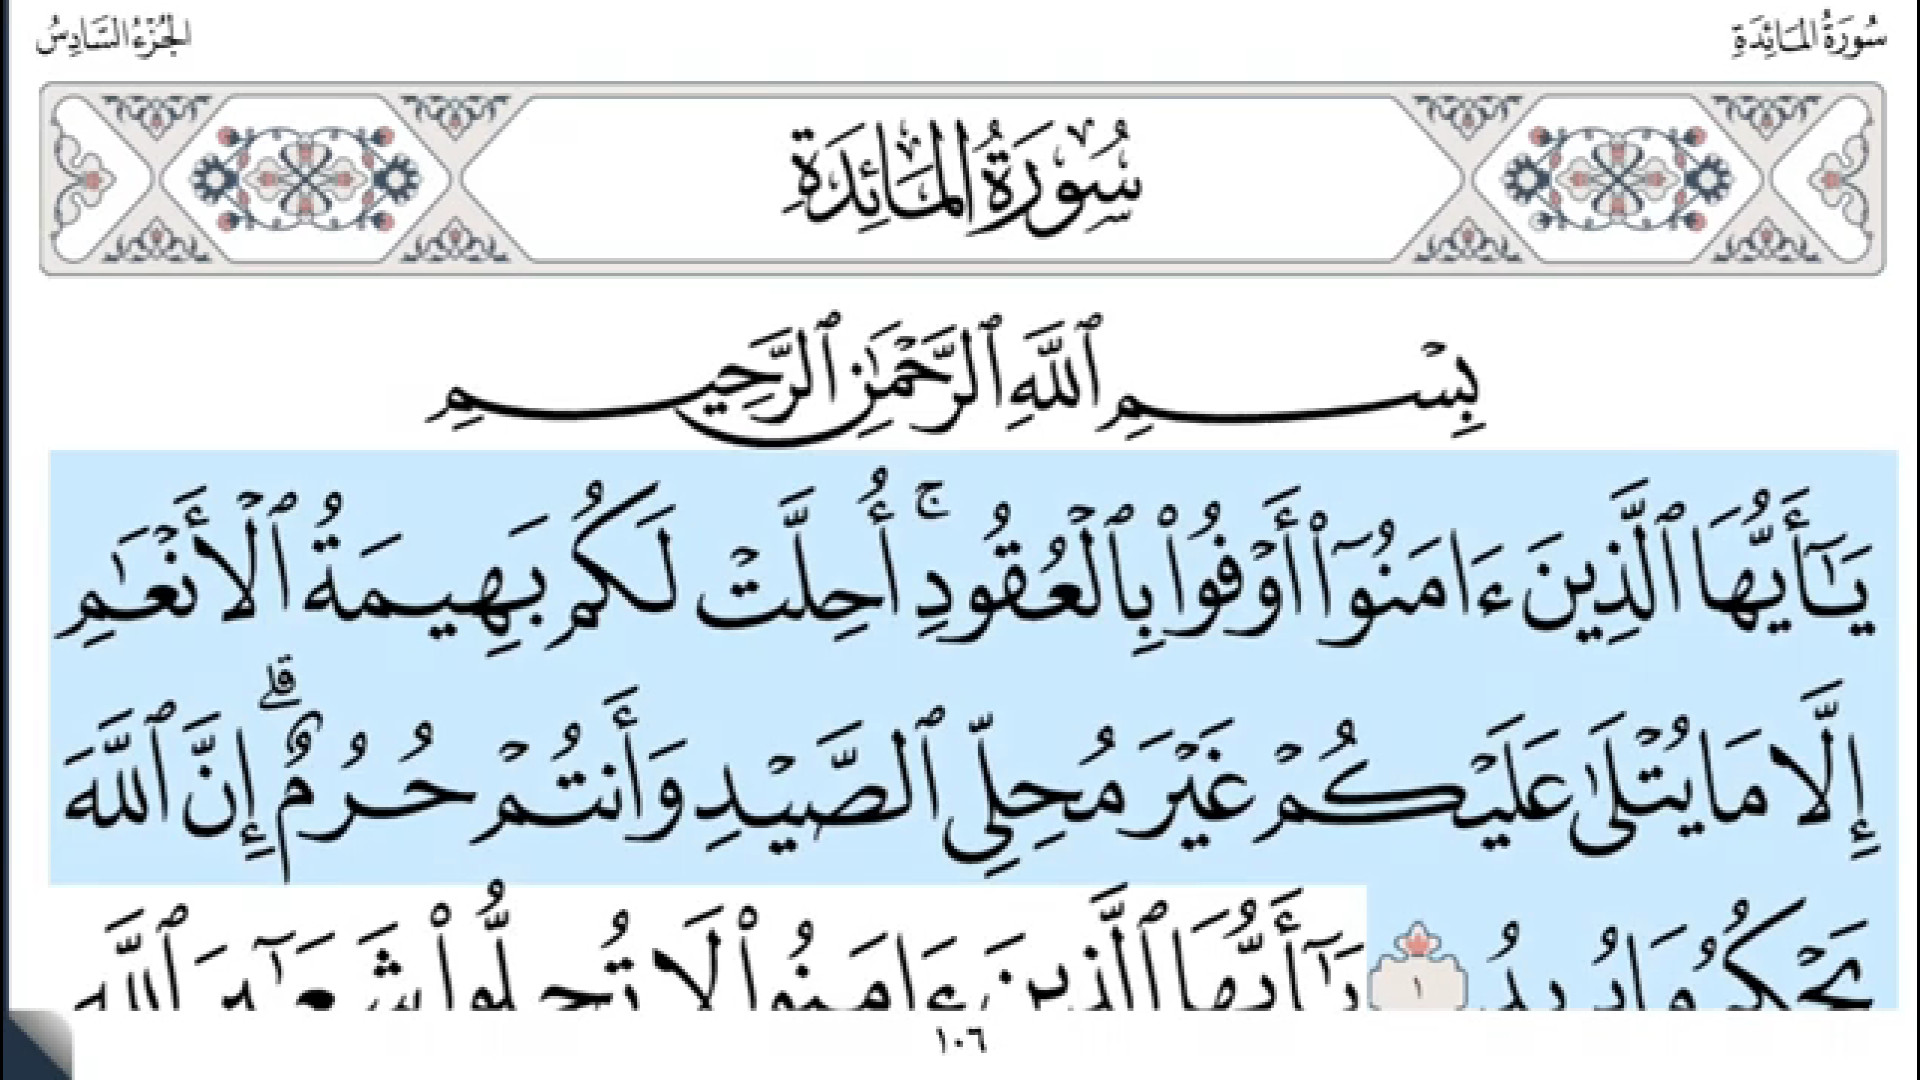 سُورَةُ المَائِدَةِ
الجُزْءُ السَّادِسُ
سُورَةُ المَائِدَةِ
بِسْمِ ٱللَّهِ ٱلرَّحْمَٰنِ ٱلرَّحِيمِ
يَٰٓأَيُّهَا ٱلَّذِينَ ءَامَنُوٓا۟ أَوْفُوا۟ بِٱلْعُقُودِ ۚ أُحِلَّتْ لَكُم بَهِيمَةُ ٱلْأَنْعَٰمِ
إِلَّا مَا يُتْلَىٰ عَلَيْكُمْ غَيْرَ مُحِلِّى ٱلصَّيْدِ وَأَنتُمْ حُرُمٌ ۗ إِنَّ ٱللَّهَ
يَحْكُمُ مَا يُرِيدُ ١ يَٰٓأَيُّهَا ٱلَّذِينَ ءَامَنُوا۟ لَا تُحِلُّوا۟ شَعَٰٓئِرَ ٱللَّهِ
١٠٦